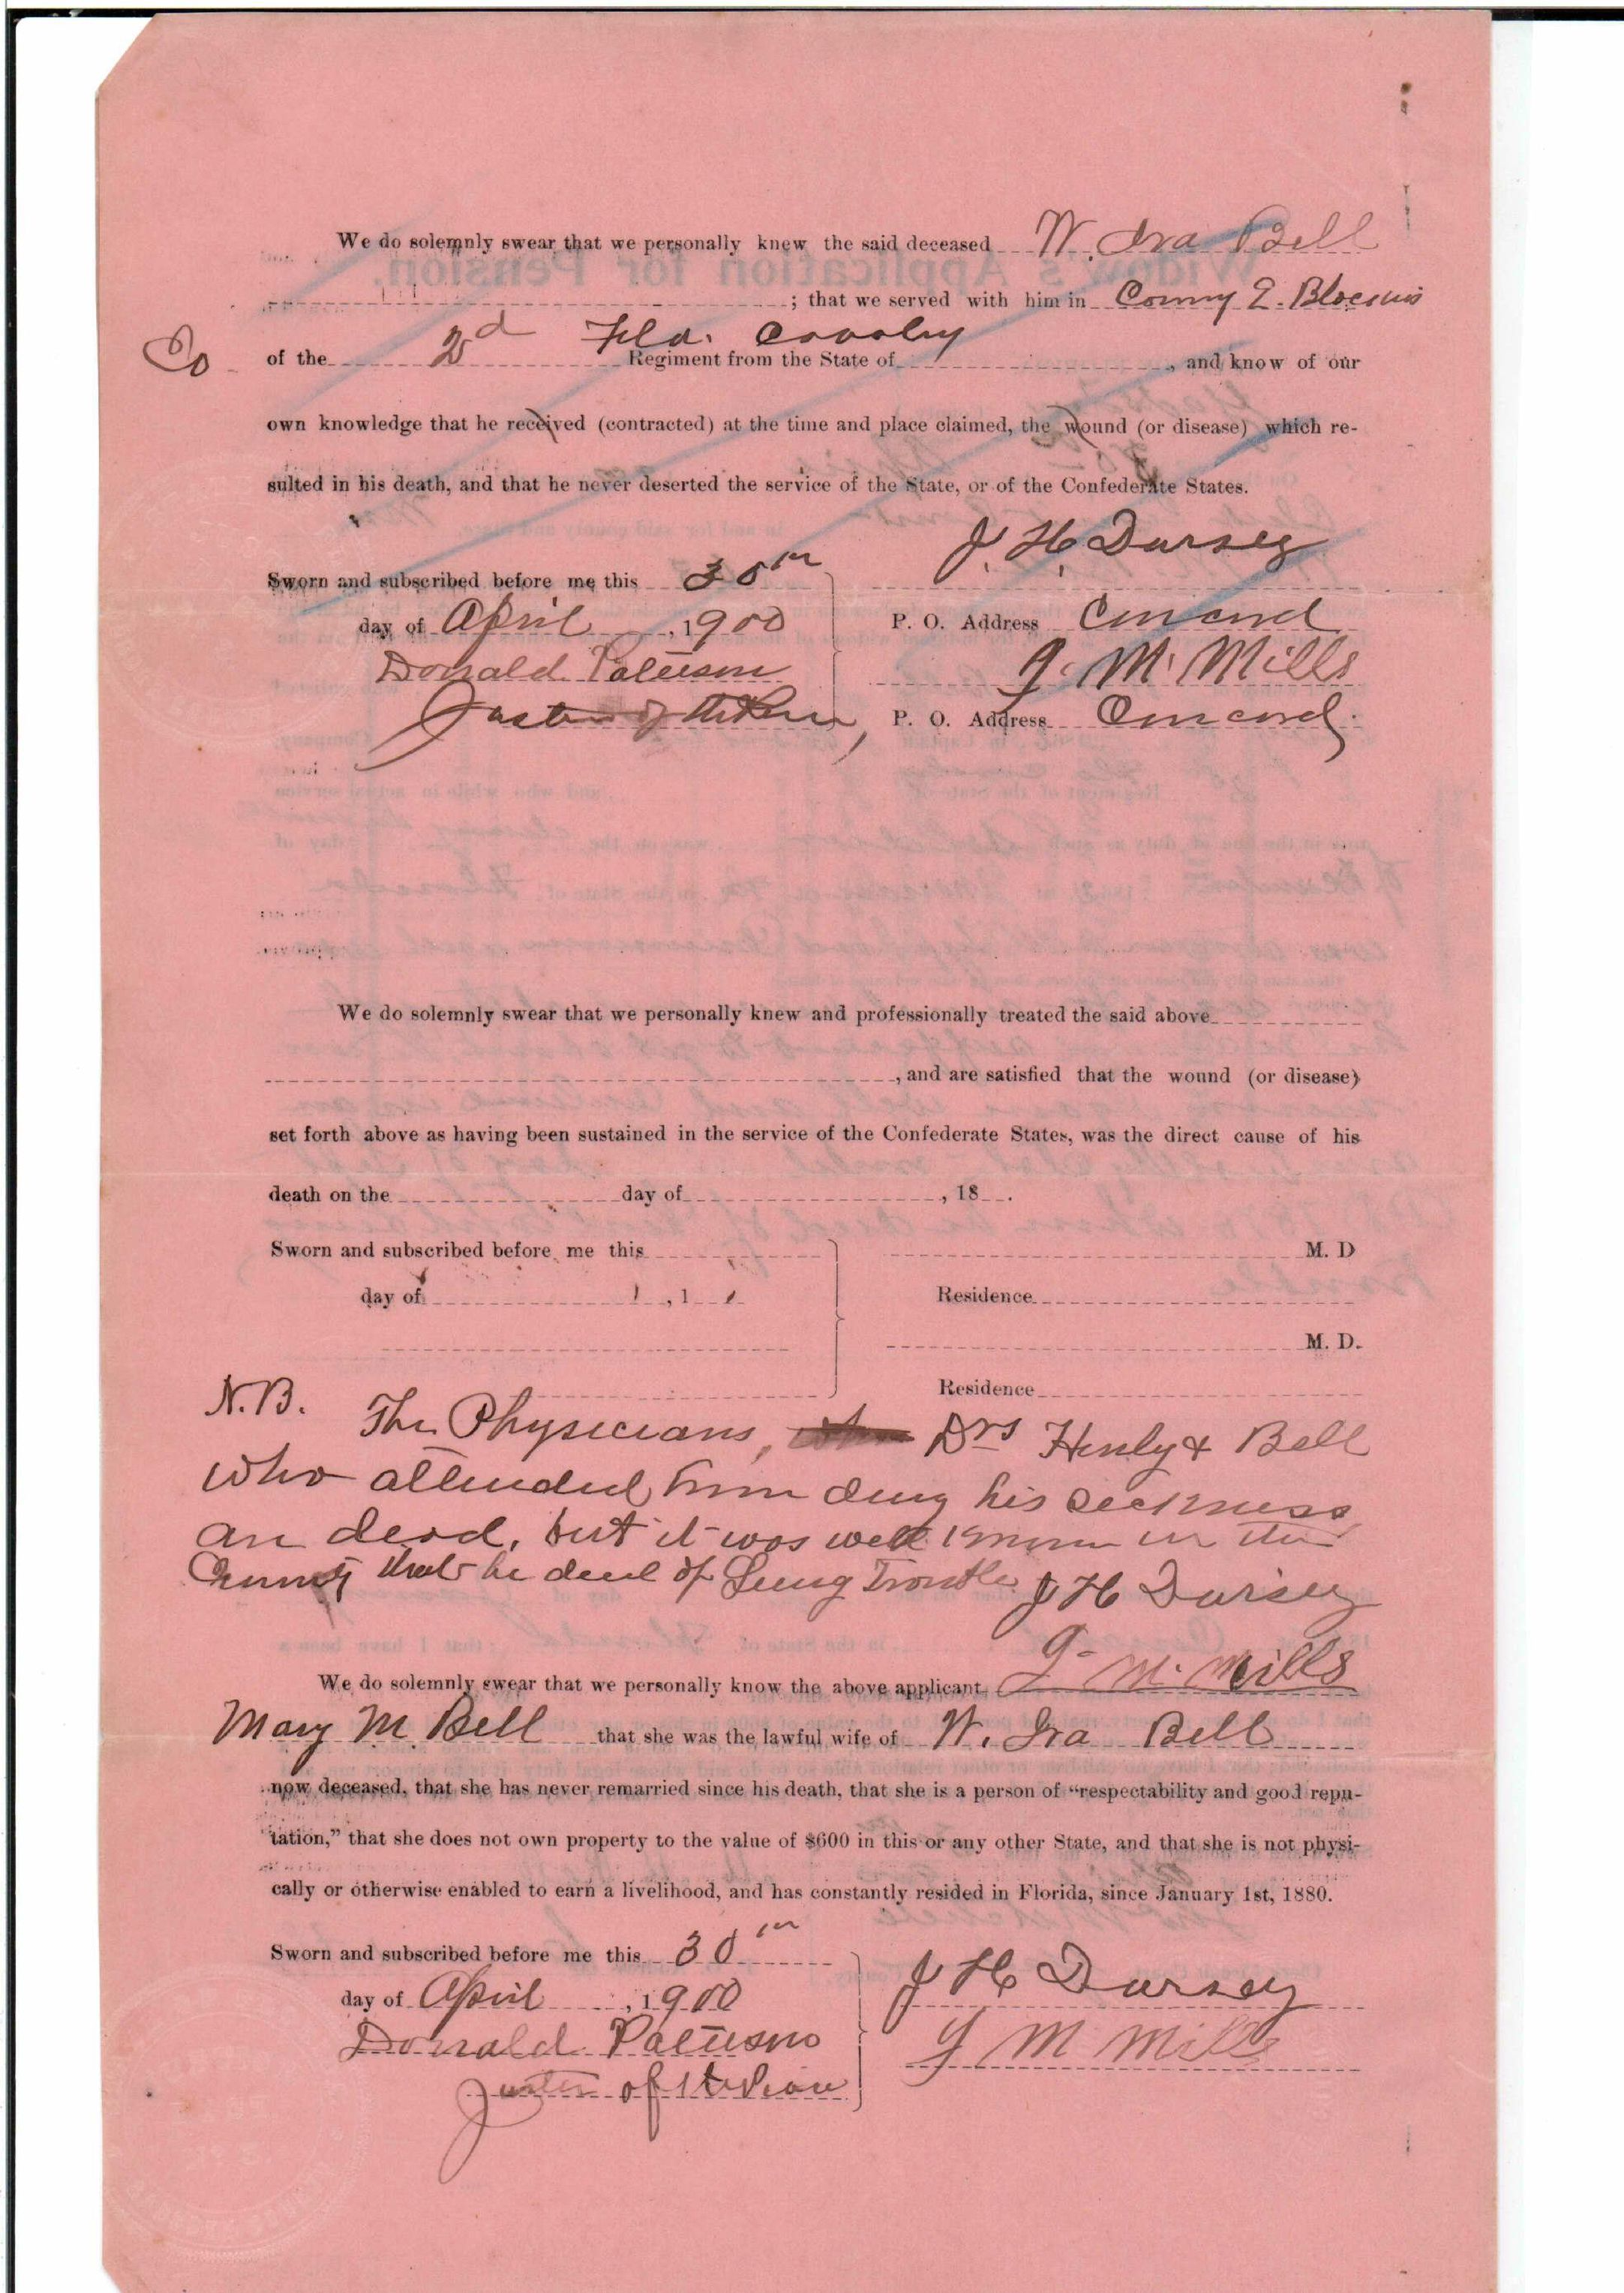 We do solemnly swear that we personally knew the said deceased W. Ira Bell
; that we served with him in Comny E.
Co of the 2d Fla. Cavalry Regiment from the State of , and know of our
own knowledge that he received (contracted) at the time and place claimed, the wound (or disease) which re-
sulted in his death, and that he never deserted the service of the State, or of the Confederate States.
J. H. Dorsey
Sworn and subscribed before me this 30th
day of April , 1900
P. O. Address Concord
Donald
J. M. Mills
Justice of the Peace,
P. O. Address Concord.
We do solemnly swear that we personally knew and professionally treated the said above
, and are satisfied that the wound (or disease)
set forth above as having been sustained in the service of the Confederate States, was the direct cause of his
death on the day of , 18 .
Sworn and subscribed before me this
M. D
day of , 1
Residence
M. D.
Residence
N.B. The Physicians, Drs Henly & Bell
who attended him his sickness
are dead, but it was well known in the
County that he died of Lung Trouble J H Dorsey
J. M. Mills
We do solemnly swear that we personally know the above applicant
Mary M. Bell that she was the lawful wife of W. Ira Bell
now deceased, that she has never remarried since his death, that she is a person of “respectability and good repu-
tation,” that she does not own property to the value of $600 in this or any other State, and that she is not physi-
cally or otherwise enabled to earn a livelihood, and has constantly resided in Florida, since January 1st, 1880.
Sworn and subscribed before me this 30th
J H Dorsey
day of April , 1900
Donald
J M Mills
Justice of the Peace